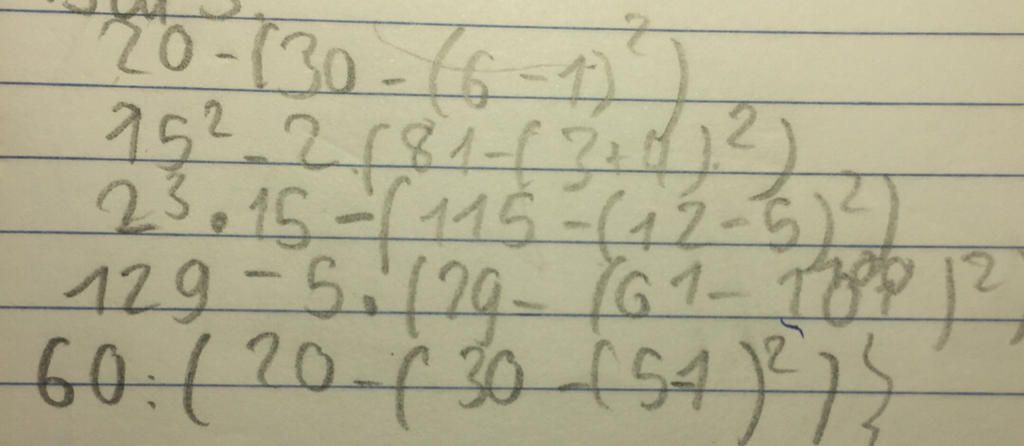 20 - (30 - (6 - 1)²)
15² - 2 (81 - (3 + 4)²)
2³ • 15 - (115 - (12 - 5)²)
129 - 5 • (79 - (61 - )²)
60 : (20 - (30 - (5-1)²)}